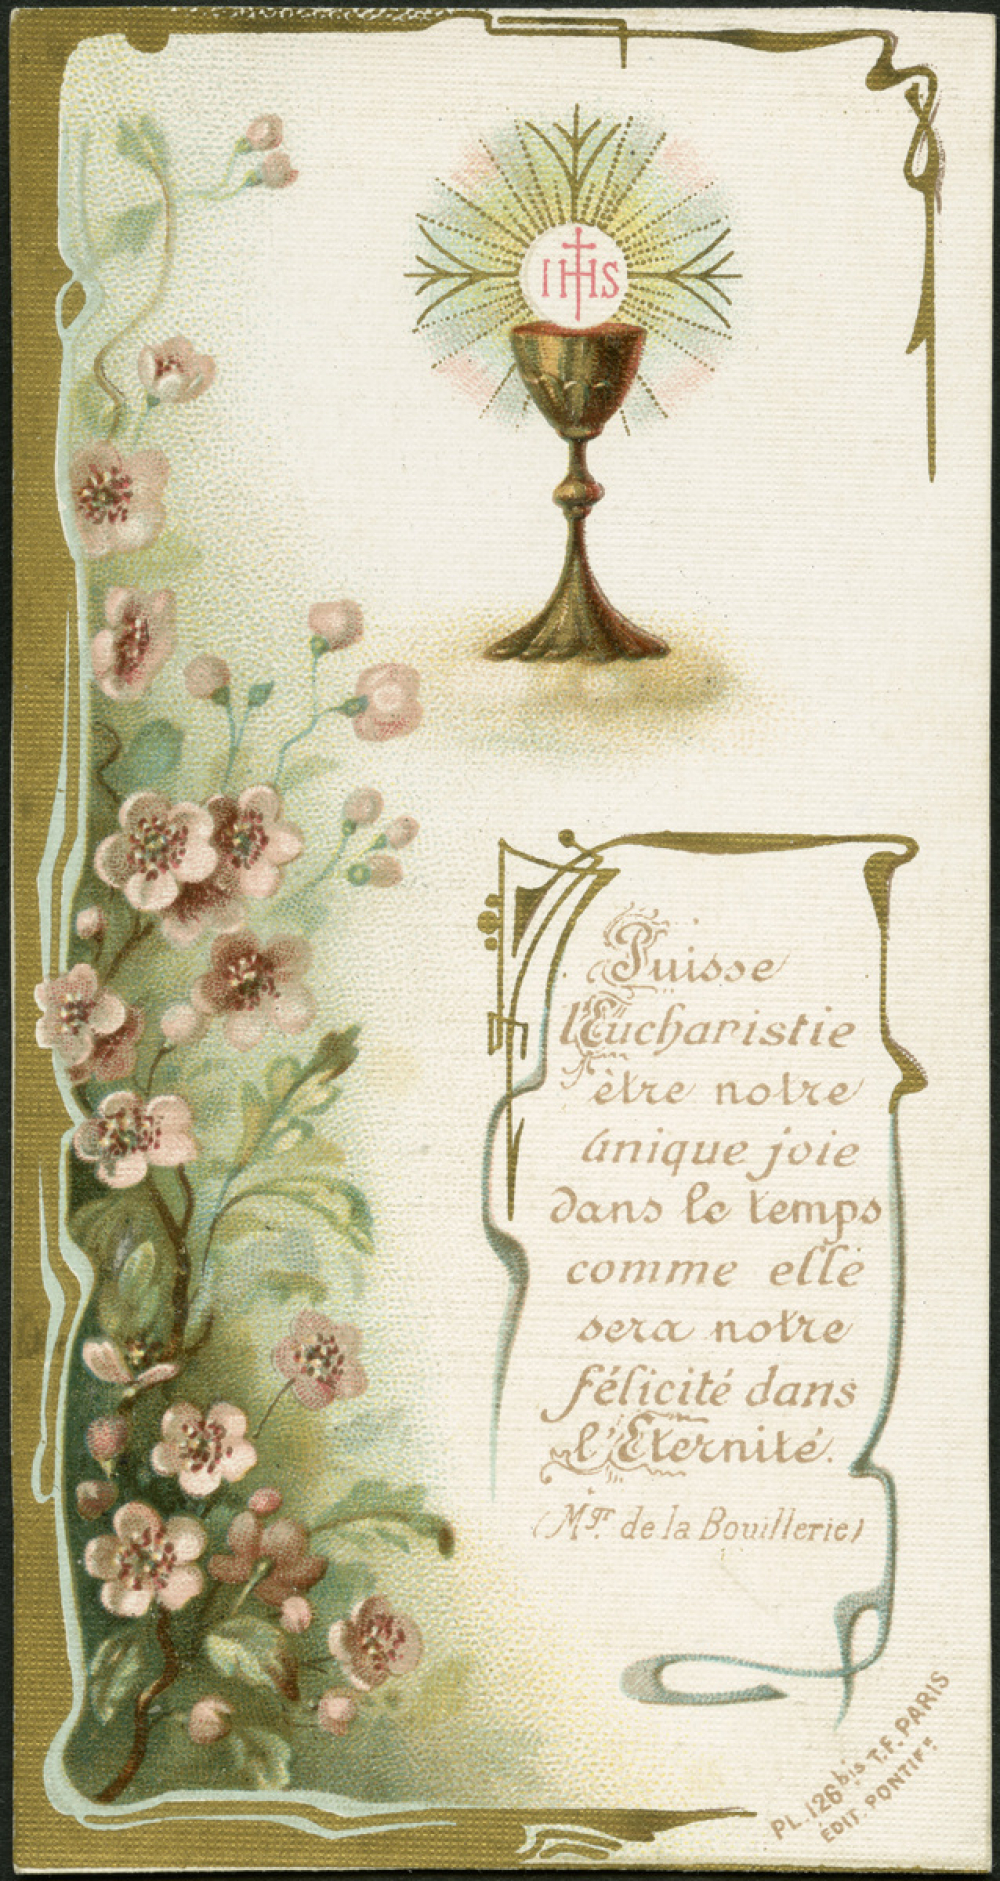 IHS
Puisse
l'Eucharistie
être notre
unique joie
dans le temps
comme elle
sera notre
félicité dans
l'Eternité.
(Mgr. de la Bouillerie)
PL. 126 bis T.F. PARIS
ÉDIT. PONTIF.